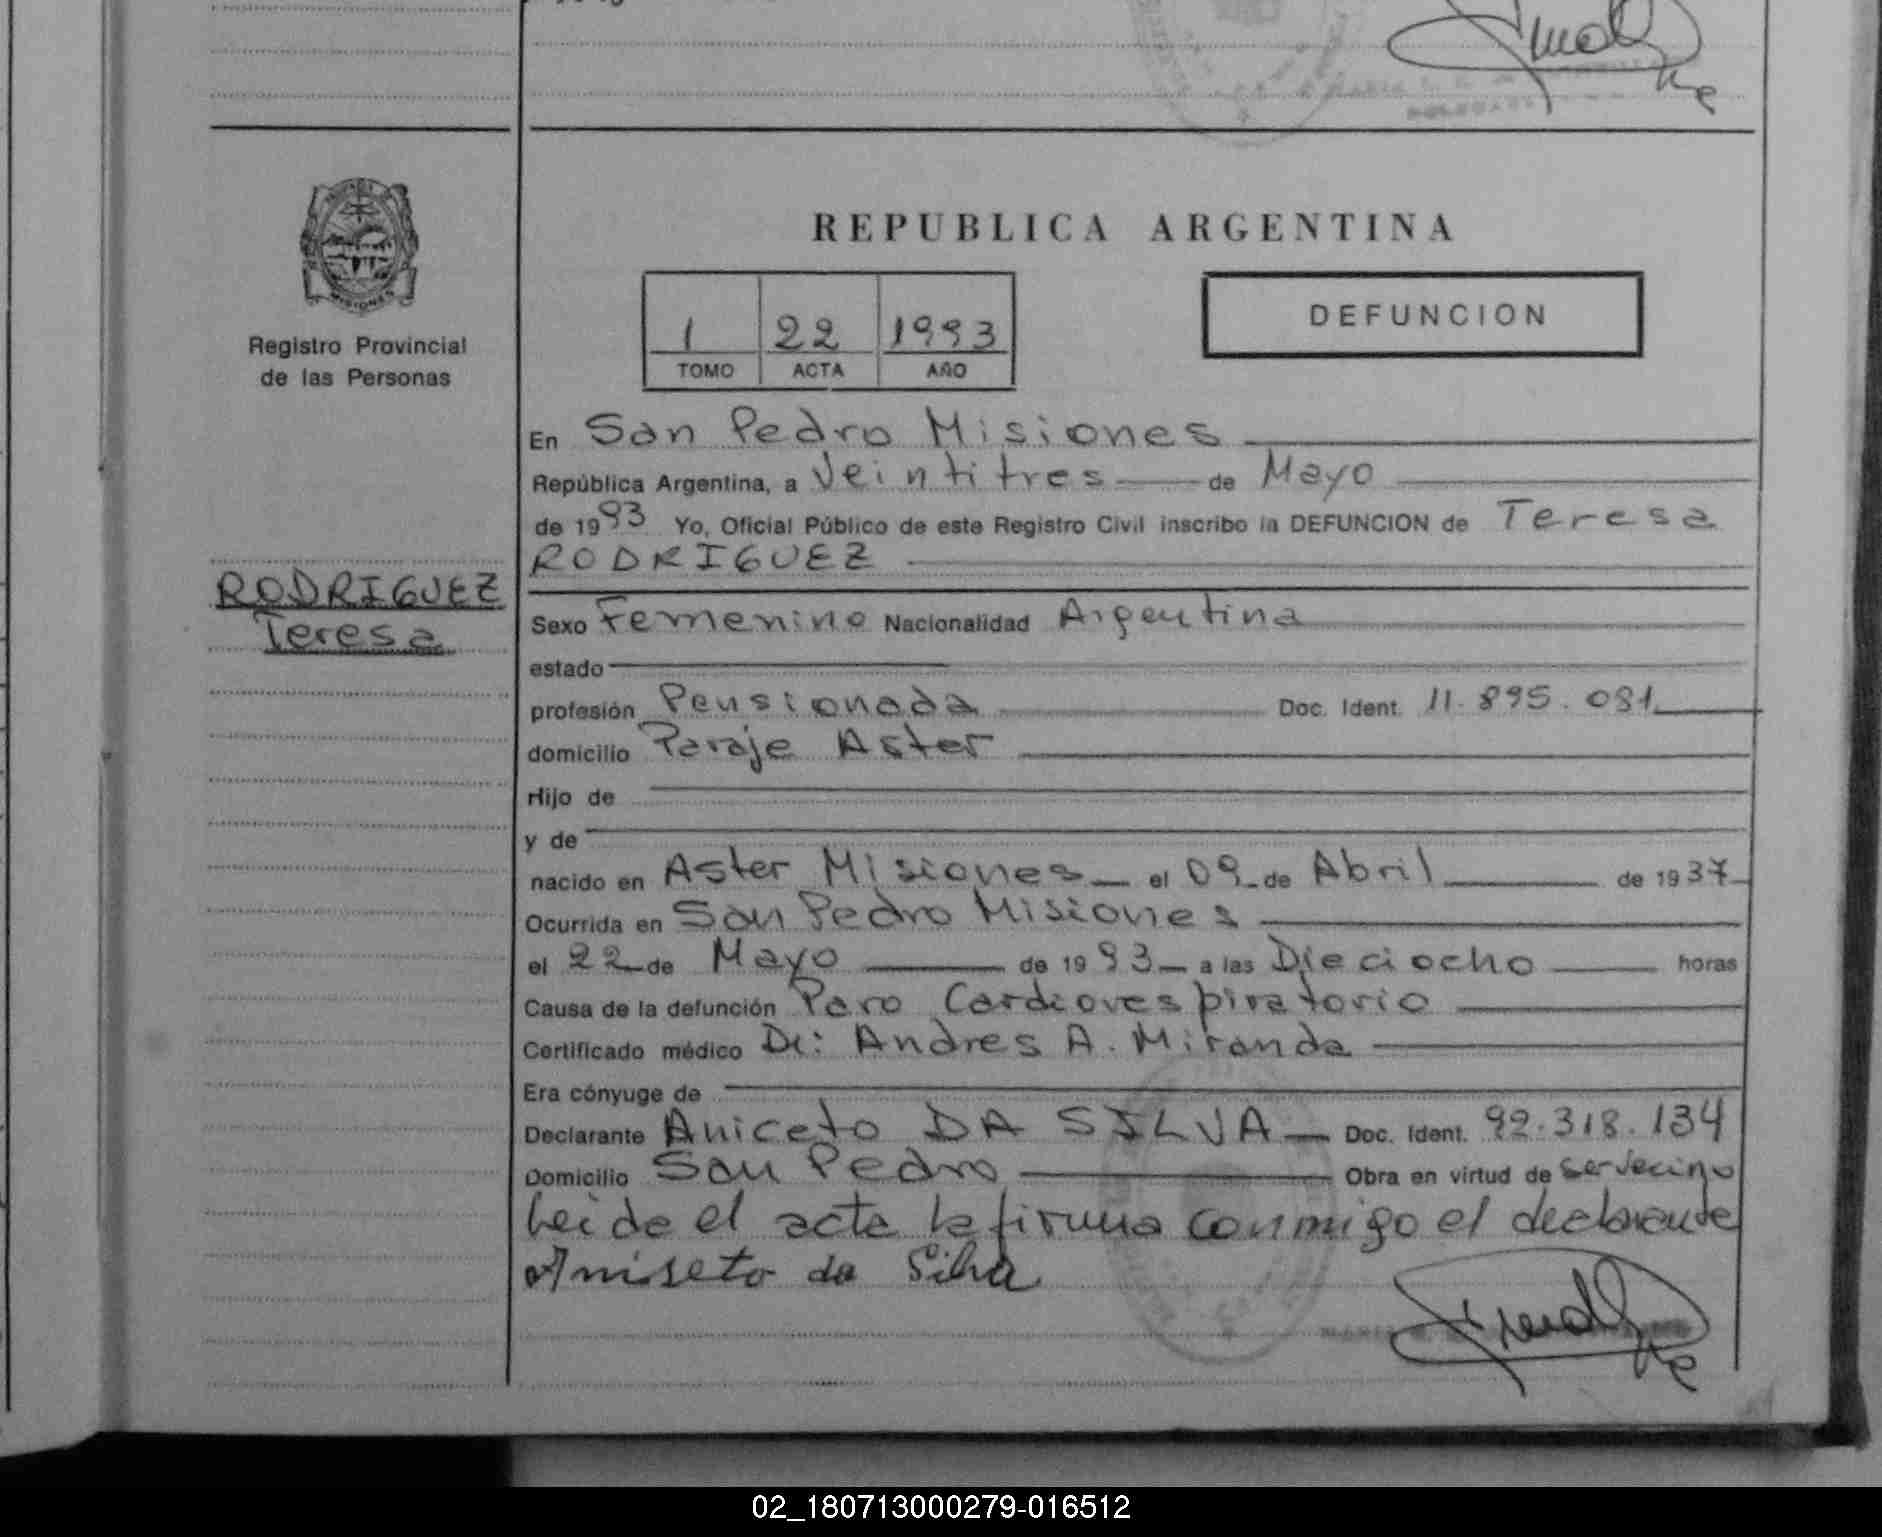 REPUBLICA ARGENTINA
Registro Provincial
de las Personas
MISIONES
1 22 1993
TOMO ACTA AÑO
DEFUNCION
RODRIGUEZ
Teresa
En San Pedro Misiones
República Argentina, a Veintitres de Mayo
de 1993 Yo, Oficial Público de este Registro Civil inscribo la DEFUNCION de Teresa
RODRIGUEZ
Sexo Femenino Nacionalidad Argentina
estado
profesión Pensionada Doc. Ident. 11.895.081
domicilio Paraje Aster
Hijo de
y de
nacido en Aster Misiones el 09 de Abril de 1937
Ocurrida en San Pedro Misiones
el 22 de Mayo de 1993 a las Dieciocho horas
Causa de la defunción Paro Cardiorespiratorio
Certificado médico Dr: Andres A. Miranda
Era cónyuge de
Declarante Aniceto DA SILVA Doc. Ident. 92.318.134
Domicilio San Pedro Obra en virtud de ser vecino
Leida el acta la firma conmigo el declarante
Aniseto da Silva
02_180713000279-016512